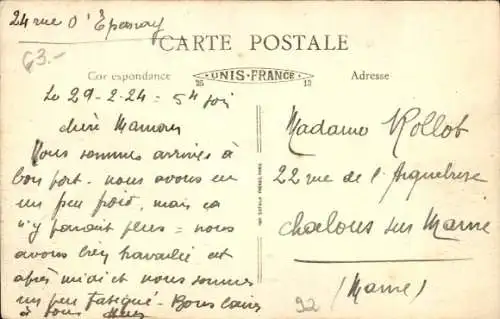 24 rue d'Epernay
63.-
CARTE POSTALE
Correspondance
UNIS-FRANCE
Adresse
Le 29-2-24 - 5h soir
chère Maman
Nous sommes arrivés à
bon port. nous avons eu
un peu froid, mais ça
n'y parait plus = nous
avons bien travaillé cet
après midi et nous sommes
un peu fatigué - Bons baisers
à tous
Madame Rollot
22 rue de l'Arquebuse
chalons sur Marne
(Marne)
92